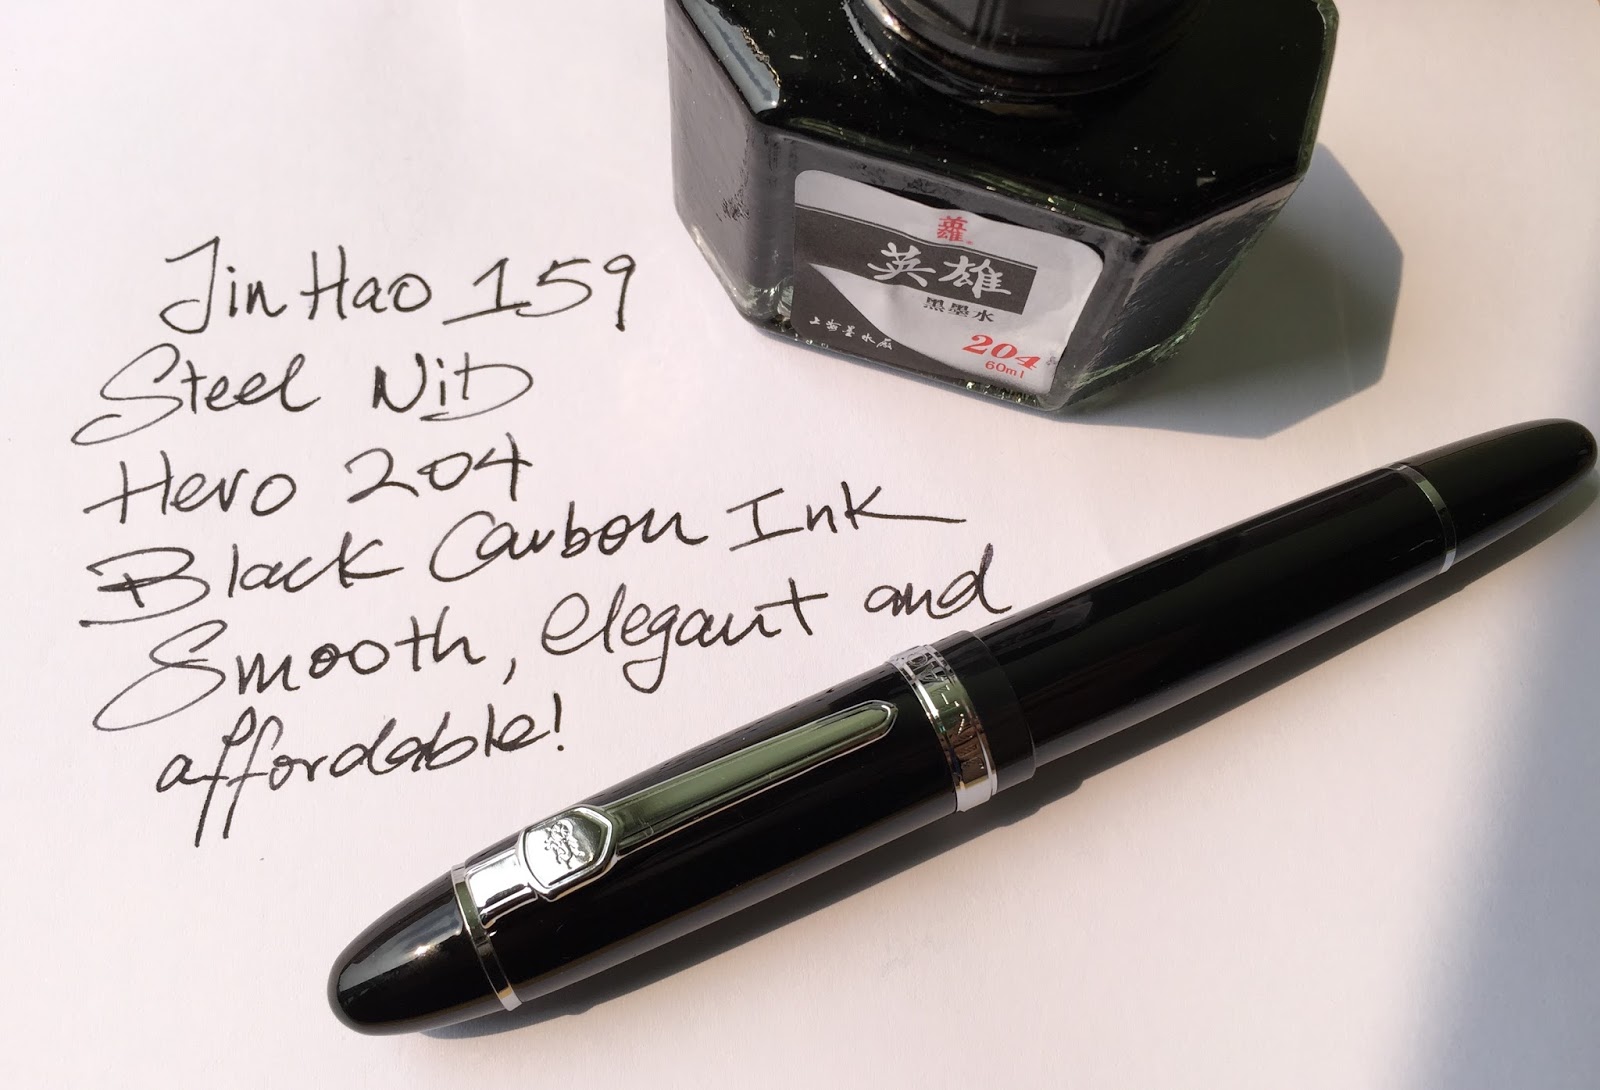 JinHao 159
Steel Nib
Hero 204
Black Carbon Ink
Smooth, elegant and
affordable!
英雄
英雄
黑墨水
上海墨水厂
204
60ml